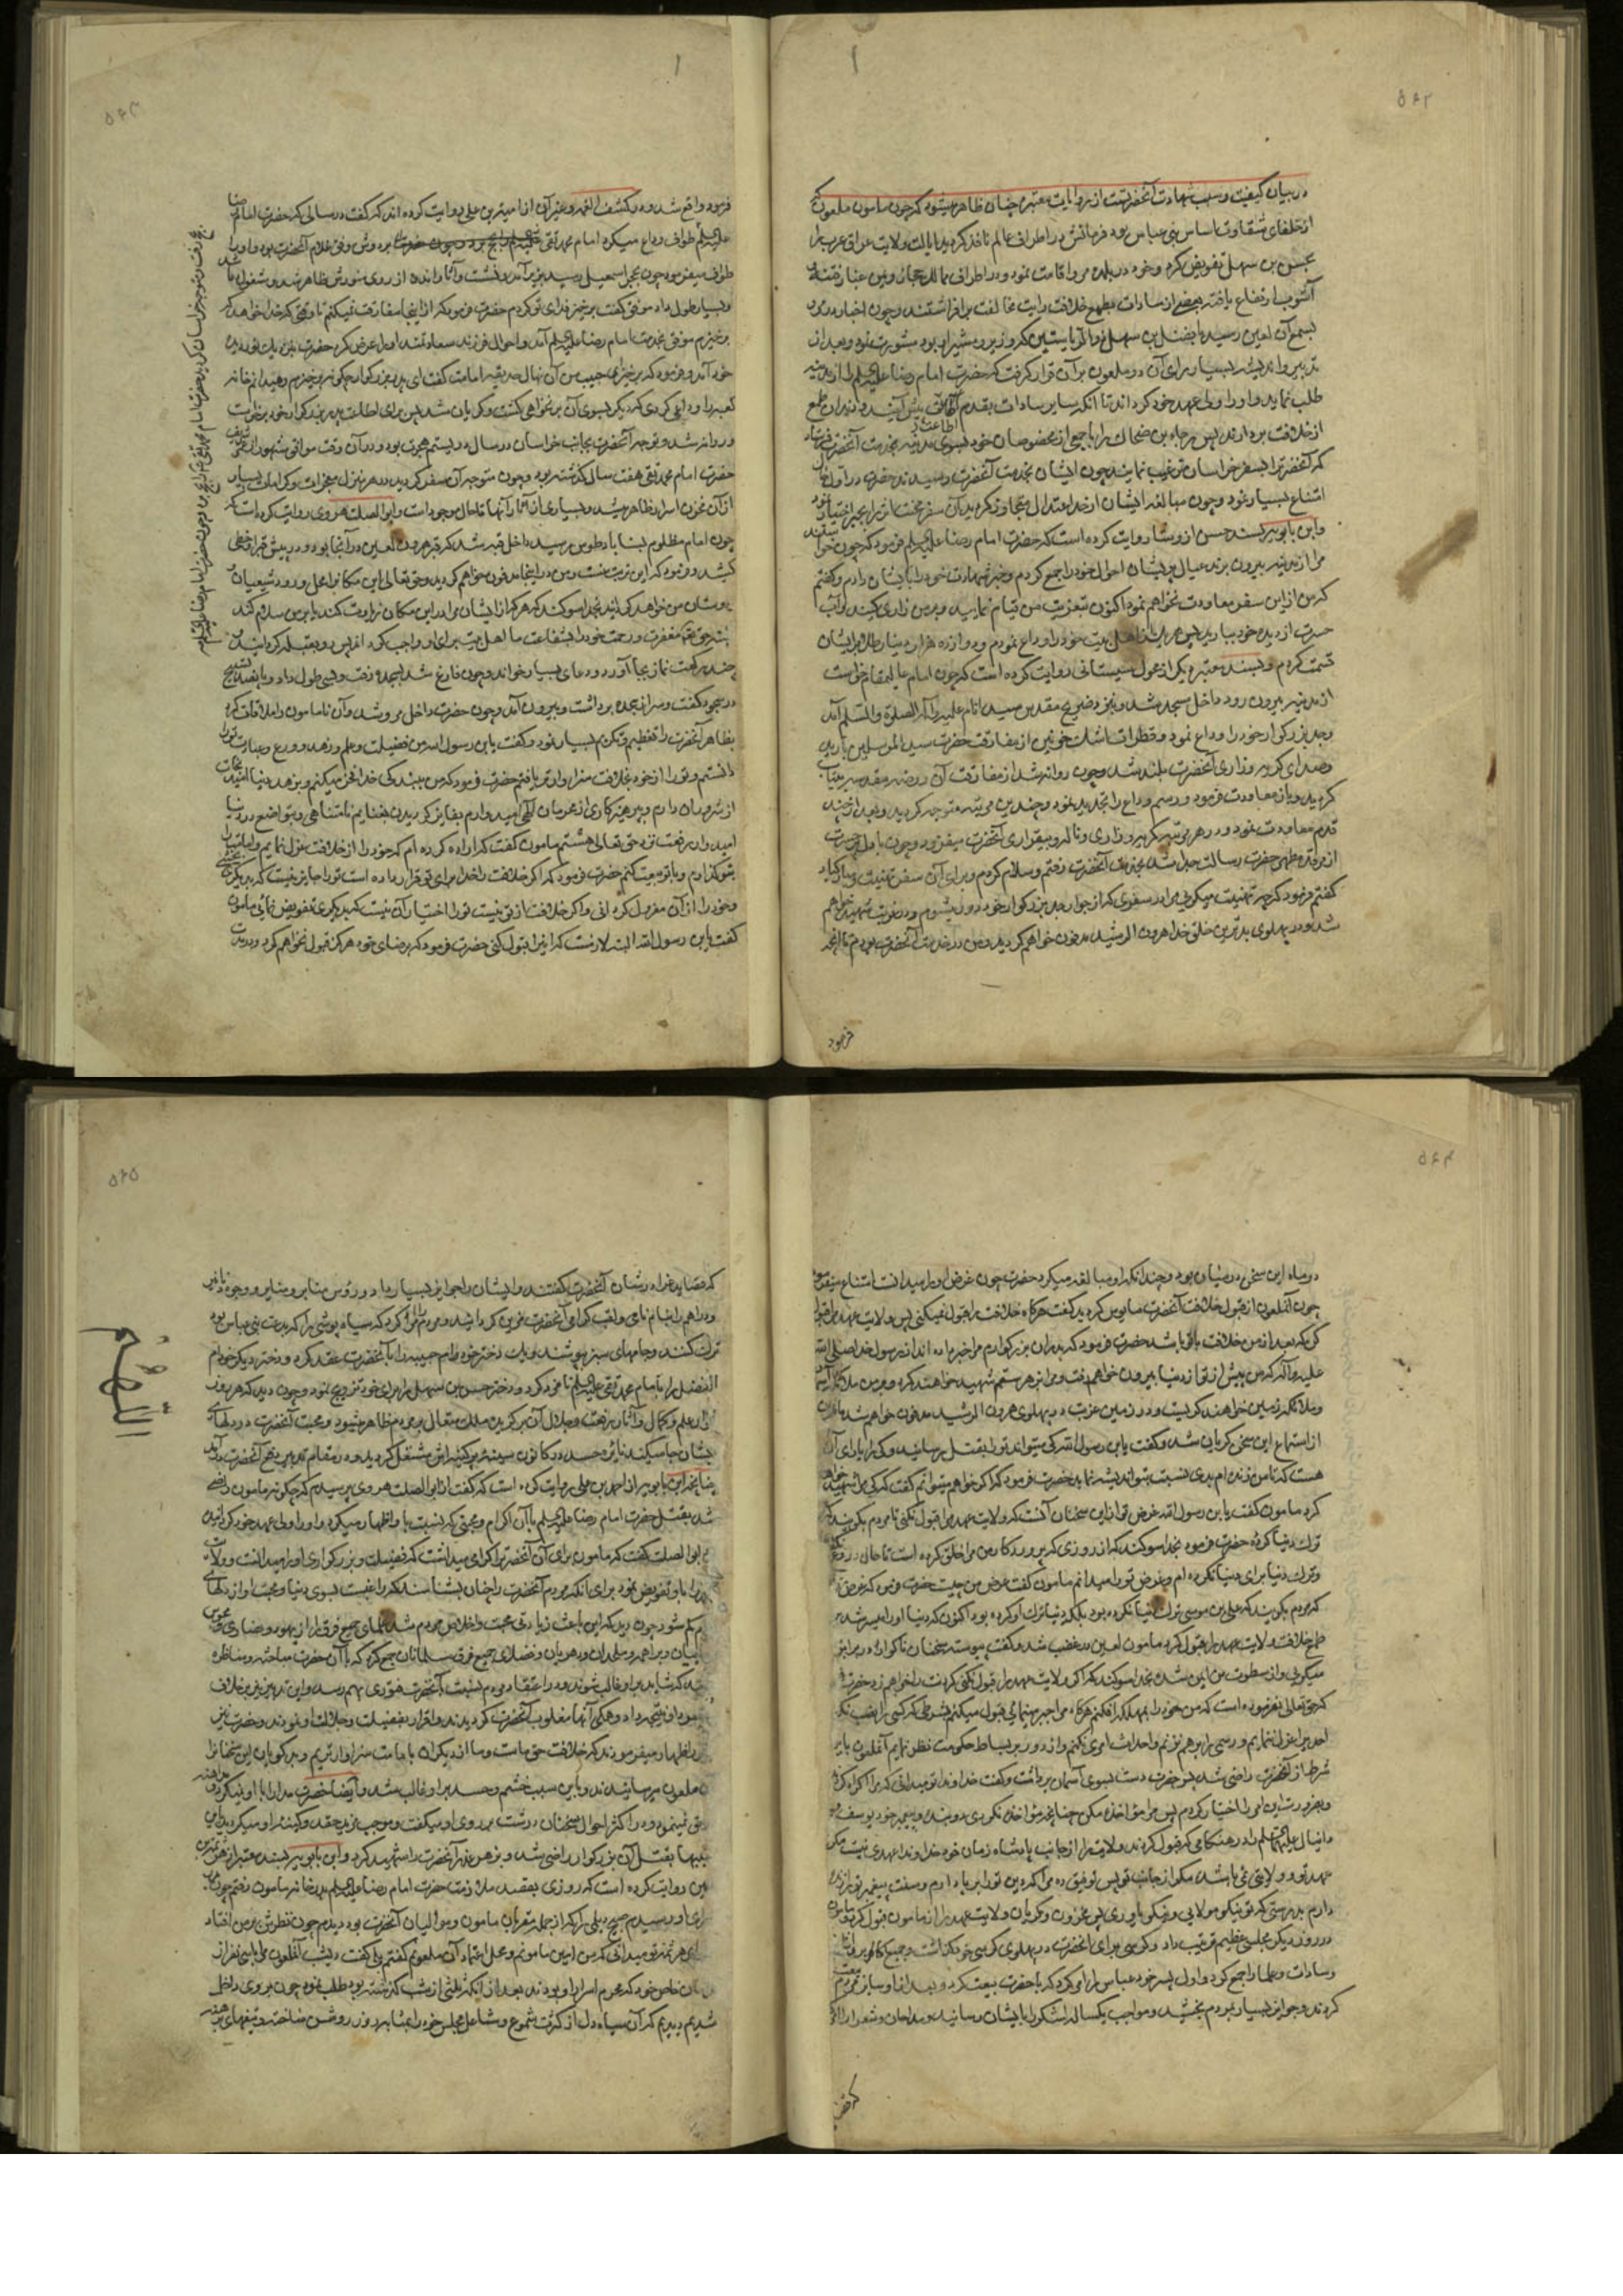 ۵۶۲
در بیان کیفیت و سبب شهادت آنحضرتست از روایات معتبره چنان ظاهر میشود که چون مامون ملعون که
از خلفای شقاوت اساس بنی عباس بود فرمانش در اطراف عالم نافذ گردید ایالت ولایت عراق عرب را
بحسن بن سهل تفویض کرد و خود در بلده مرو اقامت نمود و در اطراف ممالک حجاز و یمن غبار فتنه و
آشوب ارتفاع یافته بعضی از سادات بطمع خلافت رایت مخالفت بر افراشتند و چون اخبار در مرو
بسمع آن لعین رسید با فضل بن سهل ذوالریاستین که وزیر و مشیر او بود مشورت نمود و بعد از
تدبیر و اندیشه بسیار رای آن دو ملعون بر آن قرار گرفت که حضرت امام رضا علیه السلم را از مدینه
طلب نماید و او را ولی عهد خود گرداند تا آنکه سایر سادات بقدم اطاعت پیش آیند و دندان طمع
از خلافت بردارند پس رجاء بن ضحاک را با جمعی از مخصوصان خود بسوی مدینه بخدمت آنحضرت فرستاد
که آنحضرت را بسفر خراسان ترغیب نمایند چون ایشان بخدمت آنحضرت رسیدند حضرت در اول حال
امتناع بسیار نمود و چون مبالغه ایشان از حد اعتدال متجاوز گردید آن سفر محنت اثر را بجبر اختیار نمود
و ابن بابویه بسند حسن از وشا روایت کرده است که حضرت امام رضا علیه السلم فرمود که چون خواستند
مرا از مدینه بیرون برند عیال پریشان احوال خود را جمع کردم و خبر شهادت خود را بایشان دادم و گفتم
که من از این سفر معاودت نخواهم نمود اکنون تعزیت من قیام نمایید و بر من زاری کنید و آب
حسرت از دیده خود ببارید پس هر یک از اهل بیت خود را وداع نمودم و دوازده هزار دینار طلا بر ایشان
قسمت کردم و بسند معتبر دیگر از محول سیستانی روایت کرده است که چون امام عالیمقام خواست
از مدینه بیرون رود داخل مسجد شد و بنزد ضریح مقدس سید انام علیه و آله الصلوة والسلم آمد
وجد بزرگوار خود را وداع نمود و قطرات اشک خونین از مفارقت حضرت سید المرسلین بارید
و صدای گریه و زاری آنحضرت بلند شد و چون روانه شد از مفارقت آن روضه مقدسه بیتاب
گردید و باز معاودت فرمود و رسم وداع را تجدید نمود و چندین مرتبه متوجه گردید و بعد از چند
قدم معاودت نمود و در هر مرتبه گریه و زاری و ناله و بیقراری آنحضرت میفزود و چون با دل پر حسرت
از مرقد مطهر حضرت رسالت جدا شد بخدمت آنحضرت رفتم و سلام کردم و برای آن سفر تهنیت و مبارکباد
گفتم فرمود که چه تهنیت میگویی مرا در سفری که از جوار جد بزرگوار خود دور میشوم و در غربت شهید خواهم
شد و در پهلوی بدترین خلق خدا هرون الرشید مدفون خواهم گردید و من در خدمت آنحضرت بودم تا آنچه
فرمود
۵۶۳
فرمود واقع شد و در کشف الغمه و غیر آن از امیة بن علی روایت کرده اند که گفت در سالی که حضرت امام رضا
علیه السلم طواف وداع میکرد امام محمد تقی علیه السلم بر دوش موفق غلام آنحضرت بود و او را
طواف میفرمود چون بحجر اسمعیل رسید بزیر آمد و نشست و آثار اندوه از روی منورش ظاهر شد و مشغول دعا شد
و بسیار طول داد موفق گفت برخیز فدای تو گردم حضرت فرمود که از اینجا مفارقت نمیکنم تا وقتی که خدا خواهد که
برخیزم موفق بخدمت امام رضا علیه السلم آمد و احوال فرزند سعادتمند او را عرض کرد حضرت بنزدیک نور دیده
خود آمد و فرمود که برخیز ای حبیب من آن نهال حدیقه امامت گفت ای پدر بزرگوار چگونه برخیزم و میدانم خانه
کعبه را وداعی کردی که دیگر بسوی آن بر نخواهی گشت و گریان شد پس برای اطاعت پدر بزرگوار خود برخاست
و روانه شد و توجه آنحضرت بجانب خراسان در سال دویستم هجرت بود و در آن وقت موافق مشهور از عمر شریف
حضرت امام محمد تقی هفت سال گذشته بود و چون متوجه آن سفر گردید در هر منزل معجزات و کرامات بسیار
از آن مخزن اسرار ظاهر میشد و بسیاری از آثار آنها تا حال موجود است و ابو الصلت هروی روایت کرده است که
چون امام مظلوم بسناباد طوس رسید داخل قبه شد که قبر هرون لعین در آنجا بود و در پیش قبر او خطی
کشید و فرمود که این تربت منست و من در اینجا مدفون خواهم گردید و حق تعالی این مکان را محل ورود شیعیان و
دوستان من خواهد گردانید بخدا سوگند که هر که از ایشان مرا در این مکان زیارت کند یا بر من سلام کند
البته حق تعالی مغفرت و رحمت خود را بشفاعت ما اهل بیت برای او واجب گرداند پس رو بقبله گردانید و
چند رکعت نماز بجا آورد و دعای بسیار خواند و چون فارغ شد بسجده رفت و بسی طول داد و پانصد تسبیح
در سجود گفت و سر از سجده برداشت و بیرون آمد و چون حضرت داخل مرو شد و آن نامامون را ملاقات کرد
بظاهر آنحضرت را تعظیم و تکریم بسیار نمود و گفت یابن رسول الله من فضیلت و علم و زهد و ورع و عبادت تو را
دانستم و تو را از خود بخلافت سزاوارتر یافتم حضرت فرمود که من ببندگی خدا فخر میکنم و بزهد دنیا امید نجات
از شرور آن دارم و بپرهیزکاری از محرمات الهی امید دارم بفایز گردیدن بغنایم نامتناهی و بتواضع در دنیا
امیدوارم رفعت نزد حق تعالی هستم مامون گفت که اراده کرده ام که خود را از خلافت عزل نمایم و امامت را
بتو گذارم و با تو بیعت کنم حضرت فرمود که اگر خلافت را خدا برای تو قرار داده است تو را جایز نیست که بدیگری بخشی
و خود را از آن معزول گردانی و اگر خلافت از تو نیست تو را اختیار آن نیست که بدیگری تفویض نمائی مامون
گفت یابن رسول الله البته لازمست که این را قبول کنی حضرت فرمود که برضای خود هرگز قبول نخواهم کرد و در مدت
۵۶۴
دو ماه این سخن در میان بود و چندانکه او مبالغه میکرد حضرت چون غرض او را میدانست امتناع میفرمود
چون آنملعون از قبول خلافت آنحضرت مایوس گردید گفت هرگاه خلافت را قبول نمیکنی پس ولایت عهد مرا قبول
کن که بعد از من خلافت با تو باشد حضرت فرمود که پدران بزرگوارم مرا خبر داده اند از رسول خدا صلی الله
علیه و آله که من پیش از تو از دنیا بیرون خواهم رفت و مرا بزهر ستم شهید خواهند کرد و بر من ملائکه آسمان
و ملائکه زمین خواهند گریست و در زمین غربت در پهلوی هرون الرشید مدفون خواهم شد مامون
از استماع این سخن گریان شد و گفت یابن رسول الله که میتواند تو را بقتل رسانید و که را یارای آن
هست که تا من زنده ام بدی نسبت بتو اندیشه نماید حضرت فرمود که اگر خواهم میتوانم گفت که که مرا شهید خواهد
کرد مامون گفت یابن رسول الله غرض تو از این سخنان آنست که ولایت عهد مرا قبول نکنی تا مردم بگویند که
ترک دنیا کرده حضرت فرمود بخدا سوگند که از روزی که پروردگار من مرا خلق کرده است تا حال دروغ نگفته ام
و ترک دنیا برای دنیا نکرده ام و غرض تو را میدانم مامون گفت غرض من چیست حضرت فرمود که غرض تو
که مردم بگویند که علی بن موسی ترک دنیا نکرده بود بلکه دنیا ترک او کرده بود اکنون که دنیا او را میسر شد بر
طمع خلافت ولایت عهد را قبول کرد مامون لعین در غضب شد و گفت پیوسته سخنان ناگوار در برابر من
میگویی و از سطوت من ایمن شده بخدا سوگند که اگر ولایت عهد را قبول نکنی گردنت را خواهم زد حضرت فرمود
که حق تعالی نفرموده است که من خود را بمهلکه افکنم هرگاه مرا جبر مینمائی قبول میکنم بشرطی که کسی را نصب نکنم
احدی را عزل ننمایم و رسمی را بر هم نزنم و احداث امری نکنم و از دور بر بساط حکومت نظر نمایم آنملعون باین
شرطها از آنحضرت راضی شد پس حضرت دست بسوی آسمان برداشت و گفت خداوندا تو میدانی که مرا اکراه کردند
و بضرورت این امر را اختیار کردم پس مرا مؤاخذه مکن چنانچه مؤاخذه نکردی دو بنده و پیغمبر خود یوسف و
دانیال علیهما السلم را در هنگامی که قبول کردند ولایت را از جانب پادشاه زمان خود خداوندا عهدی نیست مگر
عهد تو و ولایتی نمی باشد مگر از جانب تو پس توفیق ده مرا که دین تو را بر پا دارم و سنت پیغمبر تو را زنده
دارم بدرستی که تو نیکو مولایی و نیکو یاوری پس محزون و گریان ولایت عهد را از مامون قبول کرد و مامون
در روز دیگر مجلسی عظیم ترتیب داد و کرسی برای آنحضرت در پهلوی کرسی خود گذاشت و جمیع اکابر و اشراف
و سادات و علما را جمع کرد و اول پسر خود عباس را امر کرد که با حضرت بیعت کرد و بعد از او سایر مردم بیعت
کردند و جوایز بسیار بمردم بخشید و مواجب یکساله لشکر را بایشان رسانید و مداحان و شعرا را امر کرد
که قصاید
۵۶۵
که قصاید غرا در شان آنحضرت گفتند و ایشان را جوایز بسیار داد و رؤس منابر و منایر و وجوه دنانیر
و دراهم را بنام نامی و لقب گرامی آنحضرت مزین گردانید و مردم را امر کرد که سیاه پوشی را که بدعت بنی عباس بود
ترک کنند و جامهای سبز پوشند و یک دختر خود ام حبیبه را با آنحضرت عقد کرد و دختر دیگر خود ام
الفضل را با امام محمد تقی علیه السلم نامزد کرد و دختر حسن بن سهل را برای خود تزویج نمود و چون دید که هر روز
انوار علم و کمال و آثار رفعت و جلال آن برگزیده ملک متعال بر مردم ظاهر میشود و محبت آنحضرت در دلهای
ایشان جا میکند نائره حسد در کانون سینه پر کینه اش مشتعل گردید و در مقام تدبیر دفع آنحضرت در آمد
چنانچه ابن بابویه از احمد بن علی روایت کرده است که گفت از ابو الصلت هروی پرسیدم که چگونه مامون راضی
شد بقتل حضرت امام رضا علیه السلم با آن اکرام و محبتی که نسبت باو اظهار میکرد و او را ولی عهد خود گردانید
ابو الصلت گفت که مامون برای آن آنحضرت را گرامی میداشت که فضیلت و بزرگواری او را میدانست و ولایت
عهد را باو تفویض نمود برای آنکه مردم آنحضرت را چنان بشناسند که راغبست بسوی دنیا و محبت او از دلهای
مردم کم شود چون دید که این باعث زیادتی محبت و اخلاص مردم شد علمای جمیع فرق را از یهود و نصاری و مجوس
و صابیان و براهمه و ملحدان و دهریان و فضلای جمیع فرق مسلمانان جمع کرد که با آن حضرت مباحثه و مناظره
نمایند که شاید بر او غالب شوند و در اعتقاد مردم نسبت بآنحضرت فتوری بهم رسد و این تدبیر نیز بر خلاف
مقصود او نتیجه داد و همگی آنها مغلوب آنحضرت گردیدند و اقرار بفضیلت و جلالت او نمودند و حضرت نیز
اظهار میفرمودند که خلافت حق ماست و ما از دیگران بامامت سزاوارتریم و بدگویان این سخنان را
بآن ملعون میرسانیدند و باین سبب خشم و حسد بر او غالب شد و ایضا حضرت مدارا با او نمیکرد و مداهنه
در حق نمینمود و در اکثر احوال سخنان درشت بر روی او میگفت و موجب مزید حقد و کینه او میگردید باین
سببها بقتل آن بزرگوار راضی شد و بزهر غدر آنحضرت را شهید کرد و ابن بابویه بسند معتبر از هرثمة بن
اعین روایت کرده است که روزی بقصد ملازمت حضرت امام رضا علیه السلم بدر خانه مامون رفتم چون بدر
سرای او رسیدم صبیح دیلمی را که از جمله مقربان مامون و موالیان آنحضرت بود دیدم چون نظرش بر من افتاد
گفت ای هرثمه تو میدانی که من امین مامونم و محل اعتماد آن ملعونم گفتم بلی گفت دیشب آنملعون مرا با سی نفر از
غلامان خاص خود که محرم اسرار او بودند بعد از آنکه ثلثی از شب گذشته بود طلب نمود چون بر وی داخل
شدیم دیدیم که آن سیاه دل از کثرت شموع و مشاعل مجلس خود را بمثابه روز روشن ساخته و تیغهای برهنه